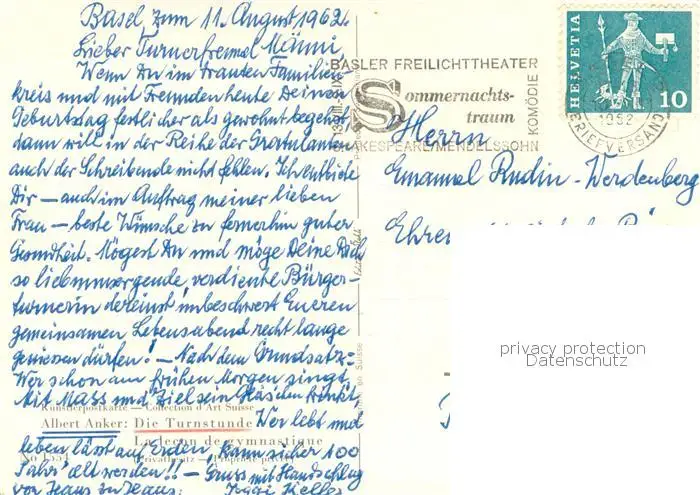 Basel zum 11. August 1962.
Lieber Turnerfreund Männi,
Wenn Du im trauten Familien-
kreis und mit Freunden heute Deinen
Geburtstag festlicher als gewohnt begehst
dann will in der Reihe der Gratulanten
auch der Schreibende nicht fehlen. Ich entbiete
Dir – auch im Auftrag meiner lieben
Frau – beste Wünsche zu fernerhin guter
Gesundheit. Mögest Du und möge Deine Dich
so lieb umsorgende, verdiente Bürger-
turnerin dereinst unbeschwert Eueren
gemeinsamen Lebensabend recht lange
geniessen dürfen! – Nach dem Grundsatz:
Wer schon am frühen Morgen singt,
Mit Mass und Ziel sein Gläschen trinkt,
Wer lebt und
leben lässt auf Erden, kann sicher 100
Jahr' alt werden!! – Gruss mit Handschlag
von Haus zu Haus: Keller
Künstlerpostkarte — Collection d'Art Suisse
Albert Anker: Die Turnstunde
La leçon de gymnastique
No 1554 Privatbesitz — Propriété privée
BASLER FREILICHTTHEATER
Sommernachts-
traum
KOMÖDIE
SHAKESPEARE/MENDELSSOHN
HELVETIA
10
1962
BRIEFVERSAND
Herrn
Emanuel Rudin-Werdenberg
privacy protection
Datenschutz